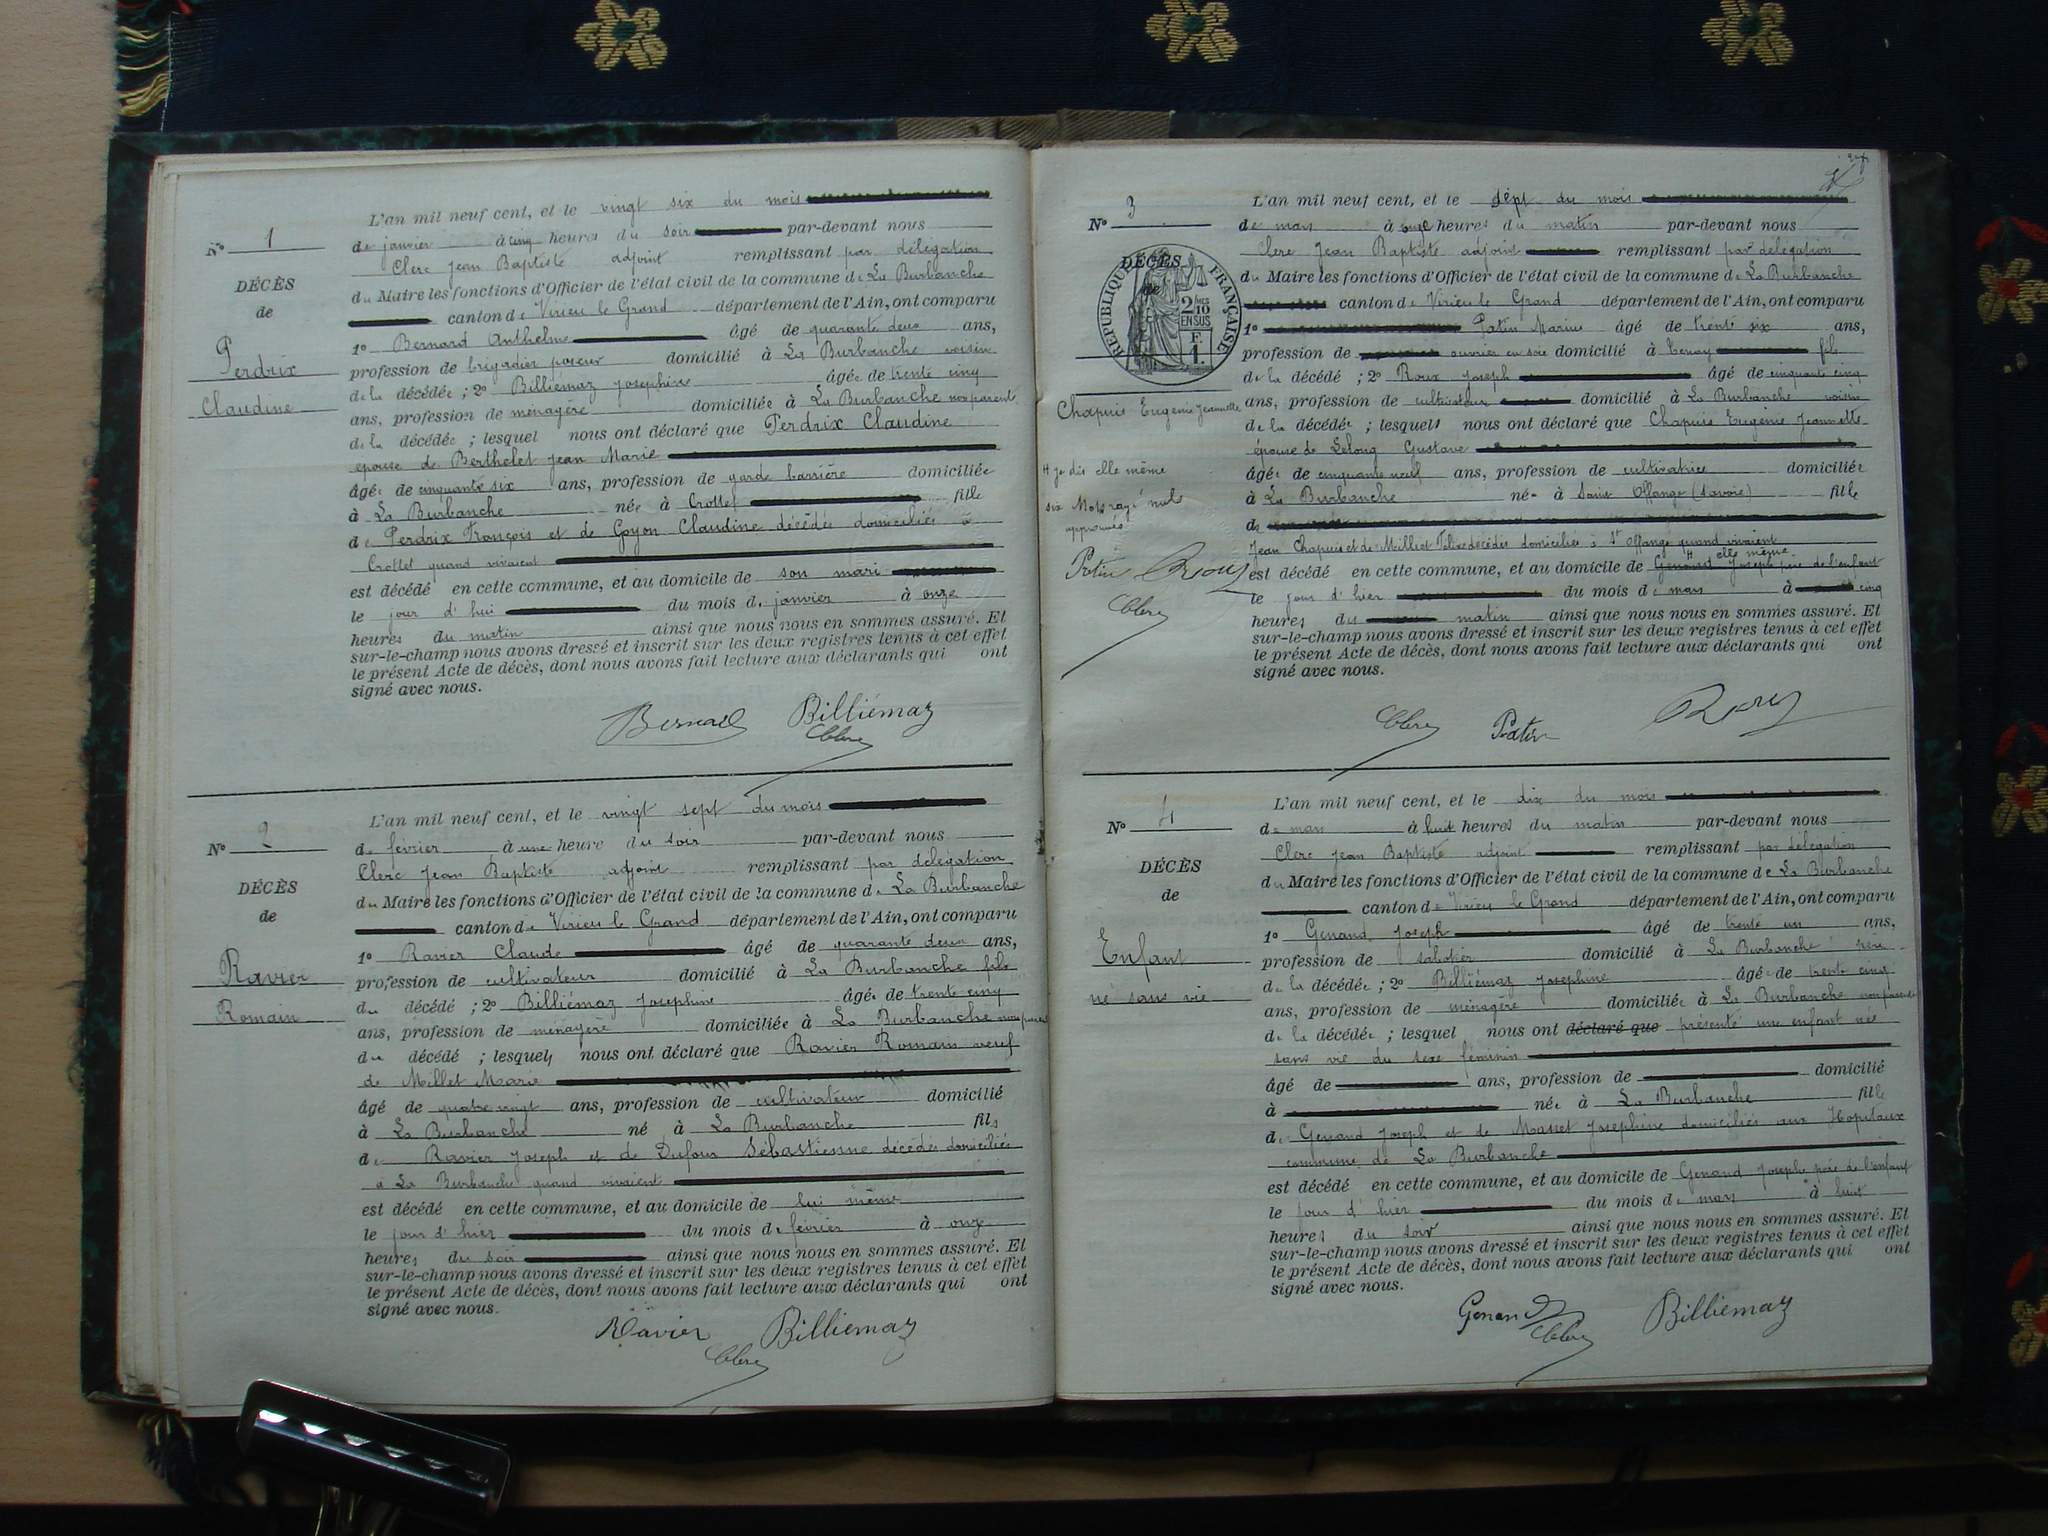 N° 1
DÉCÈS
de
Perdrix
Claudine
L'an mil neuf cent, et le vingt six du mois
de janvier à cinq heures du soir par-devant nous
Clerc Jean Baptiste adjoint remplissant par délégation
du Maire les fonctions d'Officier de l'état civil de la commune de La Burbanche
canton de Virieu le Grand département de l'Ain, ont comparu
1° Bernard Anthelme âgé de quarante deux ans,
profession de brigadier poseur domicilié à La Burbanche voisin
de la décédée ; 2° Billiémaz Josephine âgée de trente cinq
ans, profession de ménagère domiciliée à La Burbanche non parent
de la décédée ; lesquels nous ont déclaré que Perdrix Claudine
épouse de Berthelet Jean Marie
âgée de cinquante six ans, profession de garde barrière domiciliée
à La Burbanche née à Crottet fille
de Perdrix François et de Goyon Claudine décédés domiciliés à
Crottet quand vivaient
est décédé en cette commune, et au domicile de son mari
le jour d'hui du mois de janvier à onze
heures du matin ainsi que nous nous en sommes assuré. Et
sur-le-champ nous avons dressé et inscrit sur les deux registres tenus à cet effet
le présent Acte de décès, dont nous avons fait lecture aux déclarants qui ont
signé avec nous.
Bernard Billiémaz
Clerc
N° 2
DÉCÈS
de
Ravier
Romain
L'an mil neuf cent, et le vingt sept du mois
de février à une heure du soir par-devant nous
Clerc Jean Baptiste adjoint remplissant par délégation
du Maire les fonctions d'Officier de l'état civil de la commune de La Burbanche
canton de Virieu le Grand département de l'Ain, ont comparu
1° Ravier Claude âgé de quarante deux ans,
profession de cultivateur domicilié à La Burbanche fils
du décédé ; 2° Billiémaz Josephine âgée de trente cinq
ans, profession de ménagère domiciliée à La Burbanche non parent
du décédé ; lesquels nous ont déclaré que Ravier Romain veuf
de Millet Marie
âgé de quatre vingt ans, profession de cultivateur domicilié
à La Burbanche né à La Burbanche fils
de Ravier Joseph et de Dufour Sébastienne décédés domiciliés
à La Burbanche quand vivaient
est décédé en cette commune, et au domicile de lui même
le jour d'hier du mois de février à onze
heures du soir ainsi que nous nous en sommes assuré. Et
sur-le-champ nous avons dressé et inscrit sur les deux registres tenus à cet effet
le présent Acte de décès, dont nous avons fait lecture aux déclarants qui ont
signé avec nous.
Ravier Billiemaz
Clerc
N° 3
DÉCÈS
de
RÉPUBLIQUE FRANÇAISE
2/10 EN SUS
F. 1.
Chapuis Eugénie Jeannette
# je dis elle même
six Mots rayé nuls
approuvés
Patin Roux
Clerc
L'an mil neuf cent, et le sept du mois
de mars à onze heures du matin par-devant nous
Clerc Jean Baptiste adjoint remplissant par délégation
du Maire les fonctions d'Officier de l'état civil de la commune de La Burbanche
canton de Virieu le Grand département de l'Ain, ont comparu
1° Patin Marius âgé de trente six ans,
profession de ouvrier en soie domicilié à Tenay fils
de la décédé ; 2° Roux Joseph âgé de cinquante cinq
ans, profession de cultivateur domicilié à La Burbanche voisin
de la décédée ; lesquels nous ont déclaré que Chapuis Eugénie Jeannette
épouse de Lelong Gustave
âgée de cinquante neuf ans, profession de cultivatrice domiciliée
à La Burbanche née à Saint Offange (Savoie) fille
de
Jean Chapuis et de Milliet Felix décédés domiciliés à St Offange quand vivaient
est décédé en cette commune, et au domicile de Genand Joseph père de l'enfant # elle même
le jour d'hier du mois de mars à cinq
heures du matin ainsi que nous nous en sommes assuré. Et
sur-le-champ nous avons dressé et inscrit sur les deux registres tenus à cet effet
le présent Acte de décès, dont nous avons fait lecture aux déclarants qui ont
signé avec nous.
Clerc Patin Roux
N° 4
DÉCÈS
de
Enfant
né sans vie
L'an mil neuf cent, et le dix du mois
de mars à huit heures du matin par-devant nous
Clerc Jean Baptiste adjoint remplissant par délégation
du Maire les fonctions d'Officier de l'état civil de la commune de La Burbanche
canton de Virieu le Grand département de l'Ain, ont comparu
1° Genand Joseph âgé de trente un ans,
profession de sabotier domicilié à La Burbanche père
de la décédée ; 2° Billiémaz Josephine âgée de trente cinq
ans, profession de ménagère domiciliée à La Burbanche non parente
de la décédée ; lesquel nous ont déclaré que présenté une enfant née
sans vie du sexe féminin
âgé de ans, profession de domicilié
à née à La Burbanche fille
de Genand Joseph et de Masset Josephine domiciliés aux Hopitaux
commune de La Burbanche
est décédé en cette commune, et au domicile de Genand Joseph père de l'enfant
le jour d'hier du mois de mars à huit
heures du soir ainsi que nous nous en sommes assuré. Et
sur-le-champ nous avons dressé et inscrit sur les deux registres tenus à cet effet
le présent Acte de décès, dont nous avons fait lecture aux déclarants qui ont
signé avec nous.
Genand Billiemaz
Clerc